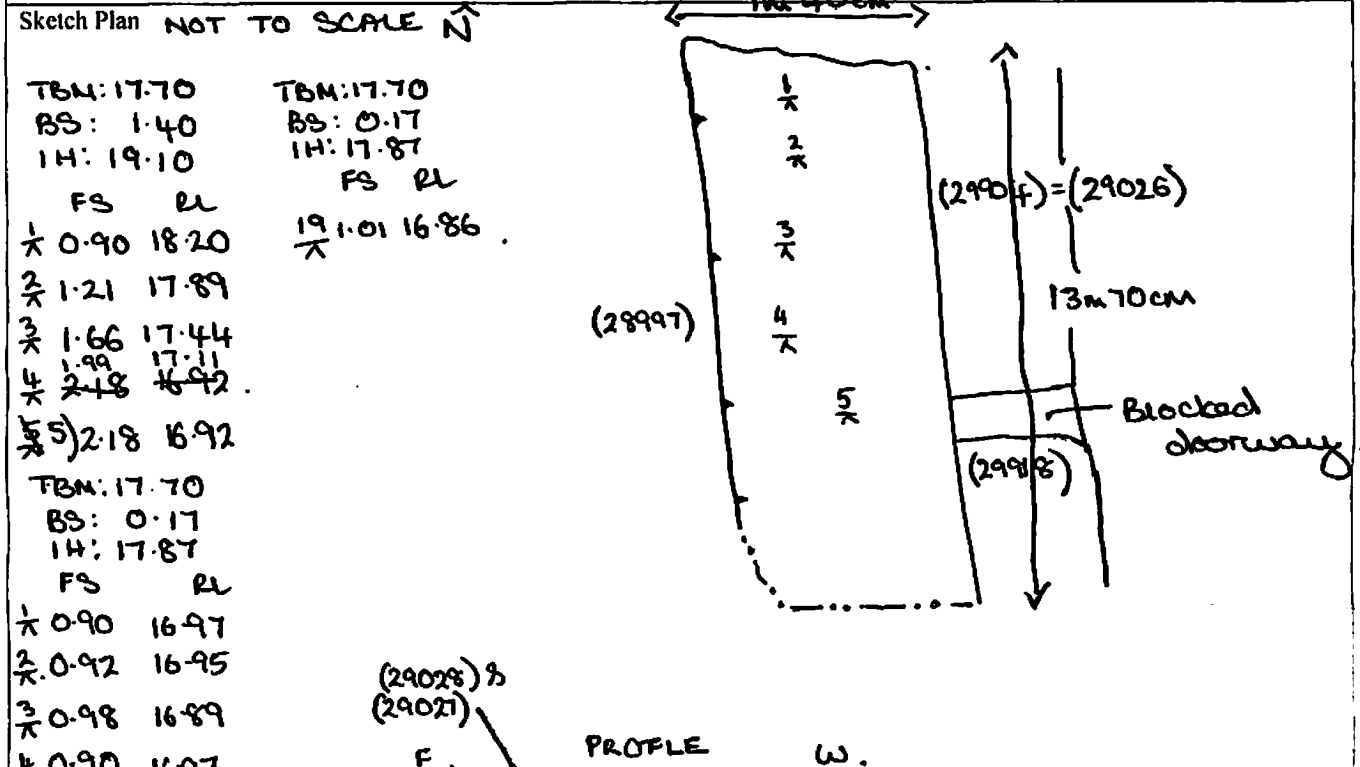 Sketch Plan NOT TO SCALE N
TBM: 17.70
BS: 1.40
IH: 19.10
FS RL
1 0.90 18.20
2 1.21 17.89
3 1.66 17.44
1.99 17.11
4 2.18 16.92
5) 2.18 16.92
TBM: 17.70
BS: 0.17
IH: 17.87
FS RL
1 0.90 16.97
2 0.92 16.95
3 0.98 16.89
TBM: 17.70
BS: 0.17
IH: 17.87
FS RL
19 1.01 16.86
1
2
3
4
5
(28997)
=(29026)
13m 70cm
Blocked
doorway
(29028) &
(29027)
PROFLE
E W.